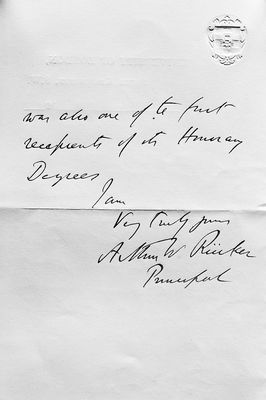 was also one of the first
recipients of its Honorary
Degrees
I am
Very truly yours
Arthur W Rücker
Principal